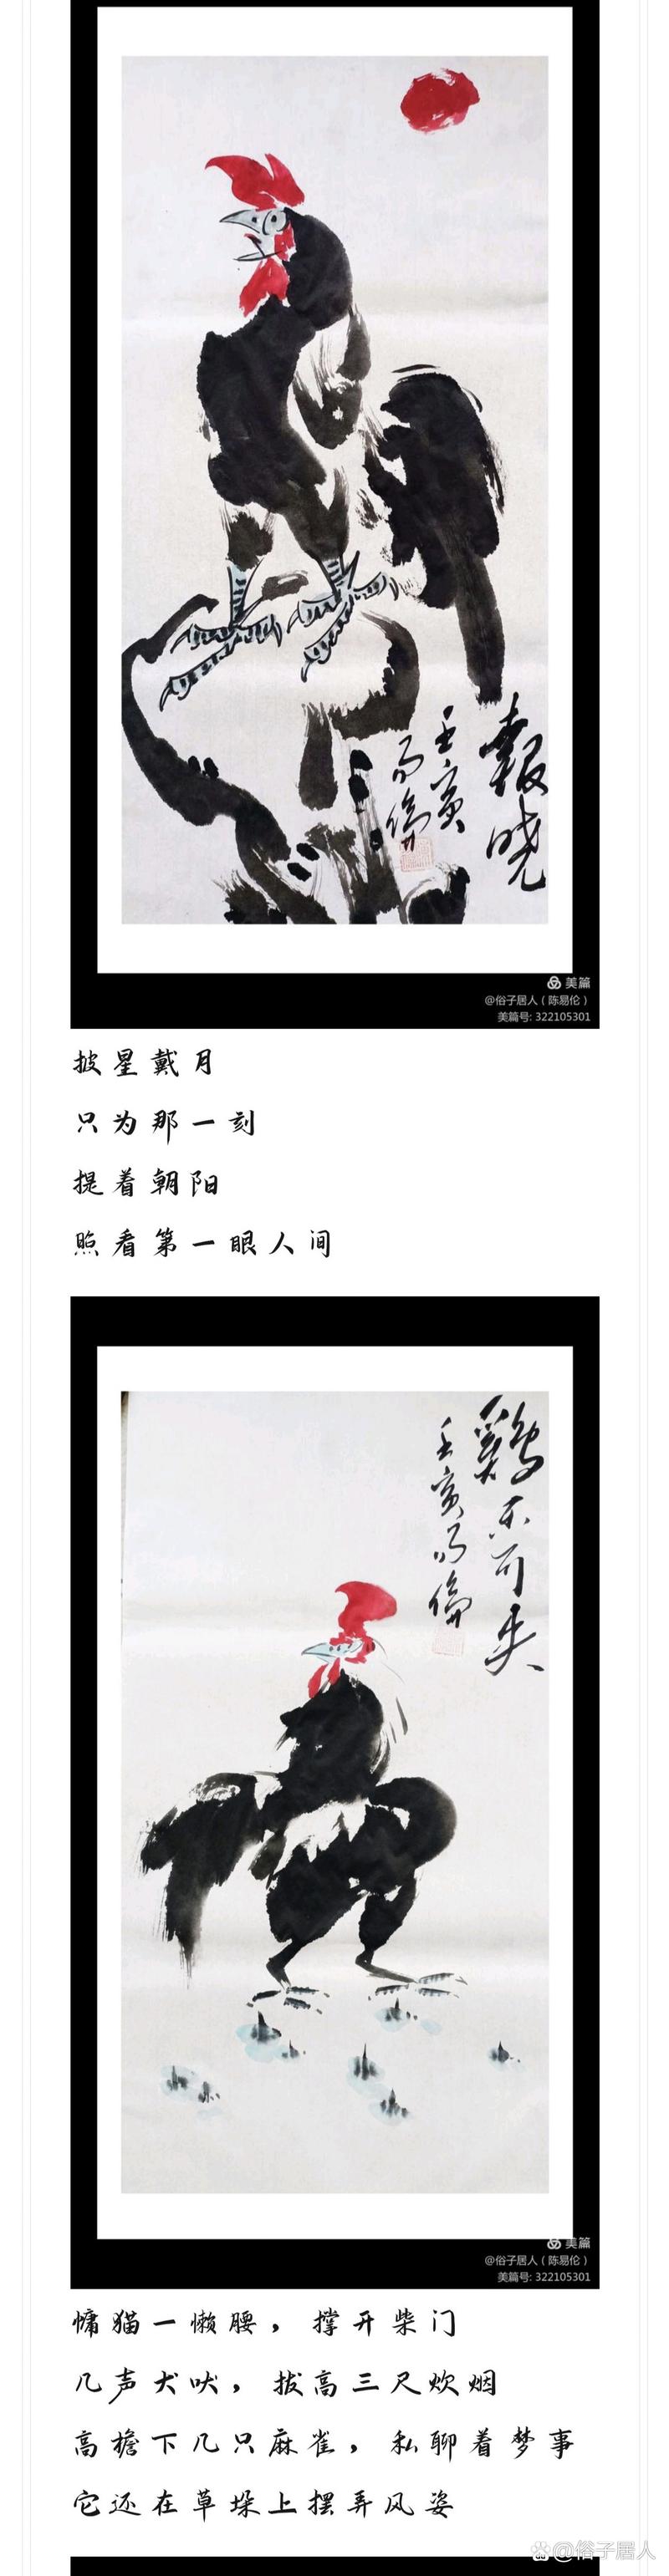 報晓
壬寅
易倫
美篇
@俗子居人（陈易伦）
美篇号: 322105301
披星戴月
只为那一刻
提着朝阳
照看第一眼人间
鷄不可失
壬寅易倫
美篇
@俗子居人（陈易伦）
美篇号: 322105301
慵猫一懒腰，撑开柴门
几声犬吠，拔高三尺炊烟
高檐下几只麻雀，私聊着梦事
它还在草垛上摆弄风姿
@俗子居人